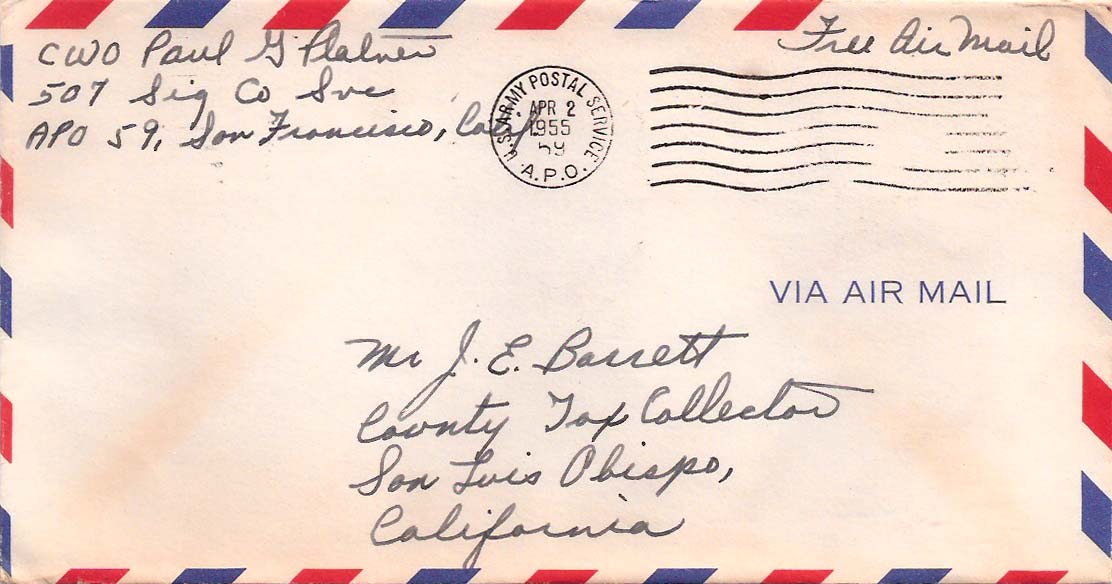 CWO Paul G Platner
507 Sig Co Svc
APO 59, San Francisco, Calif
Free Air Mail
U.S. ARMY POSTAL SERVICE
APR 2
1955
59
A.P.O.
VIA AIR MAIL
Mr J. E. Barrett
County Tax Collector
San Luis Obispo,
California